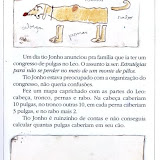 Um dia tio Jonho anunciou pra família que ia ter um
congresso de pulgas no Leo. O assunto ia ser: Estratégia
para não se perder no meio de um monte de pêlos.
Tio Jonho estava preocupado com a organização do
congresso, não queria confusões.
Fez um mapa caprichado com as partes do Leo:
cabeça, tronco, pernas e rabo. Na cabeça caberiam
10 pulgas, no tronco outras 10, em cada perna caberiam
5 pulgas e, no rabo, 2.
Tio Jonho é ruinzinho de contas e não conseguiu
calcular quantas pulgas caberiam em seu cão.